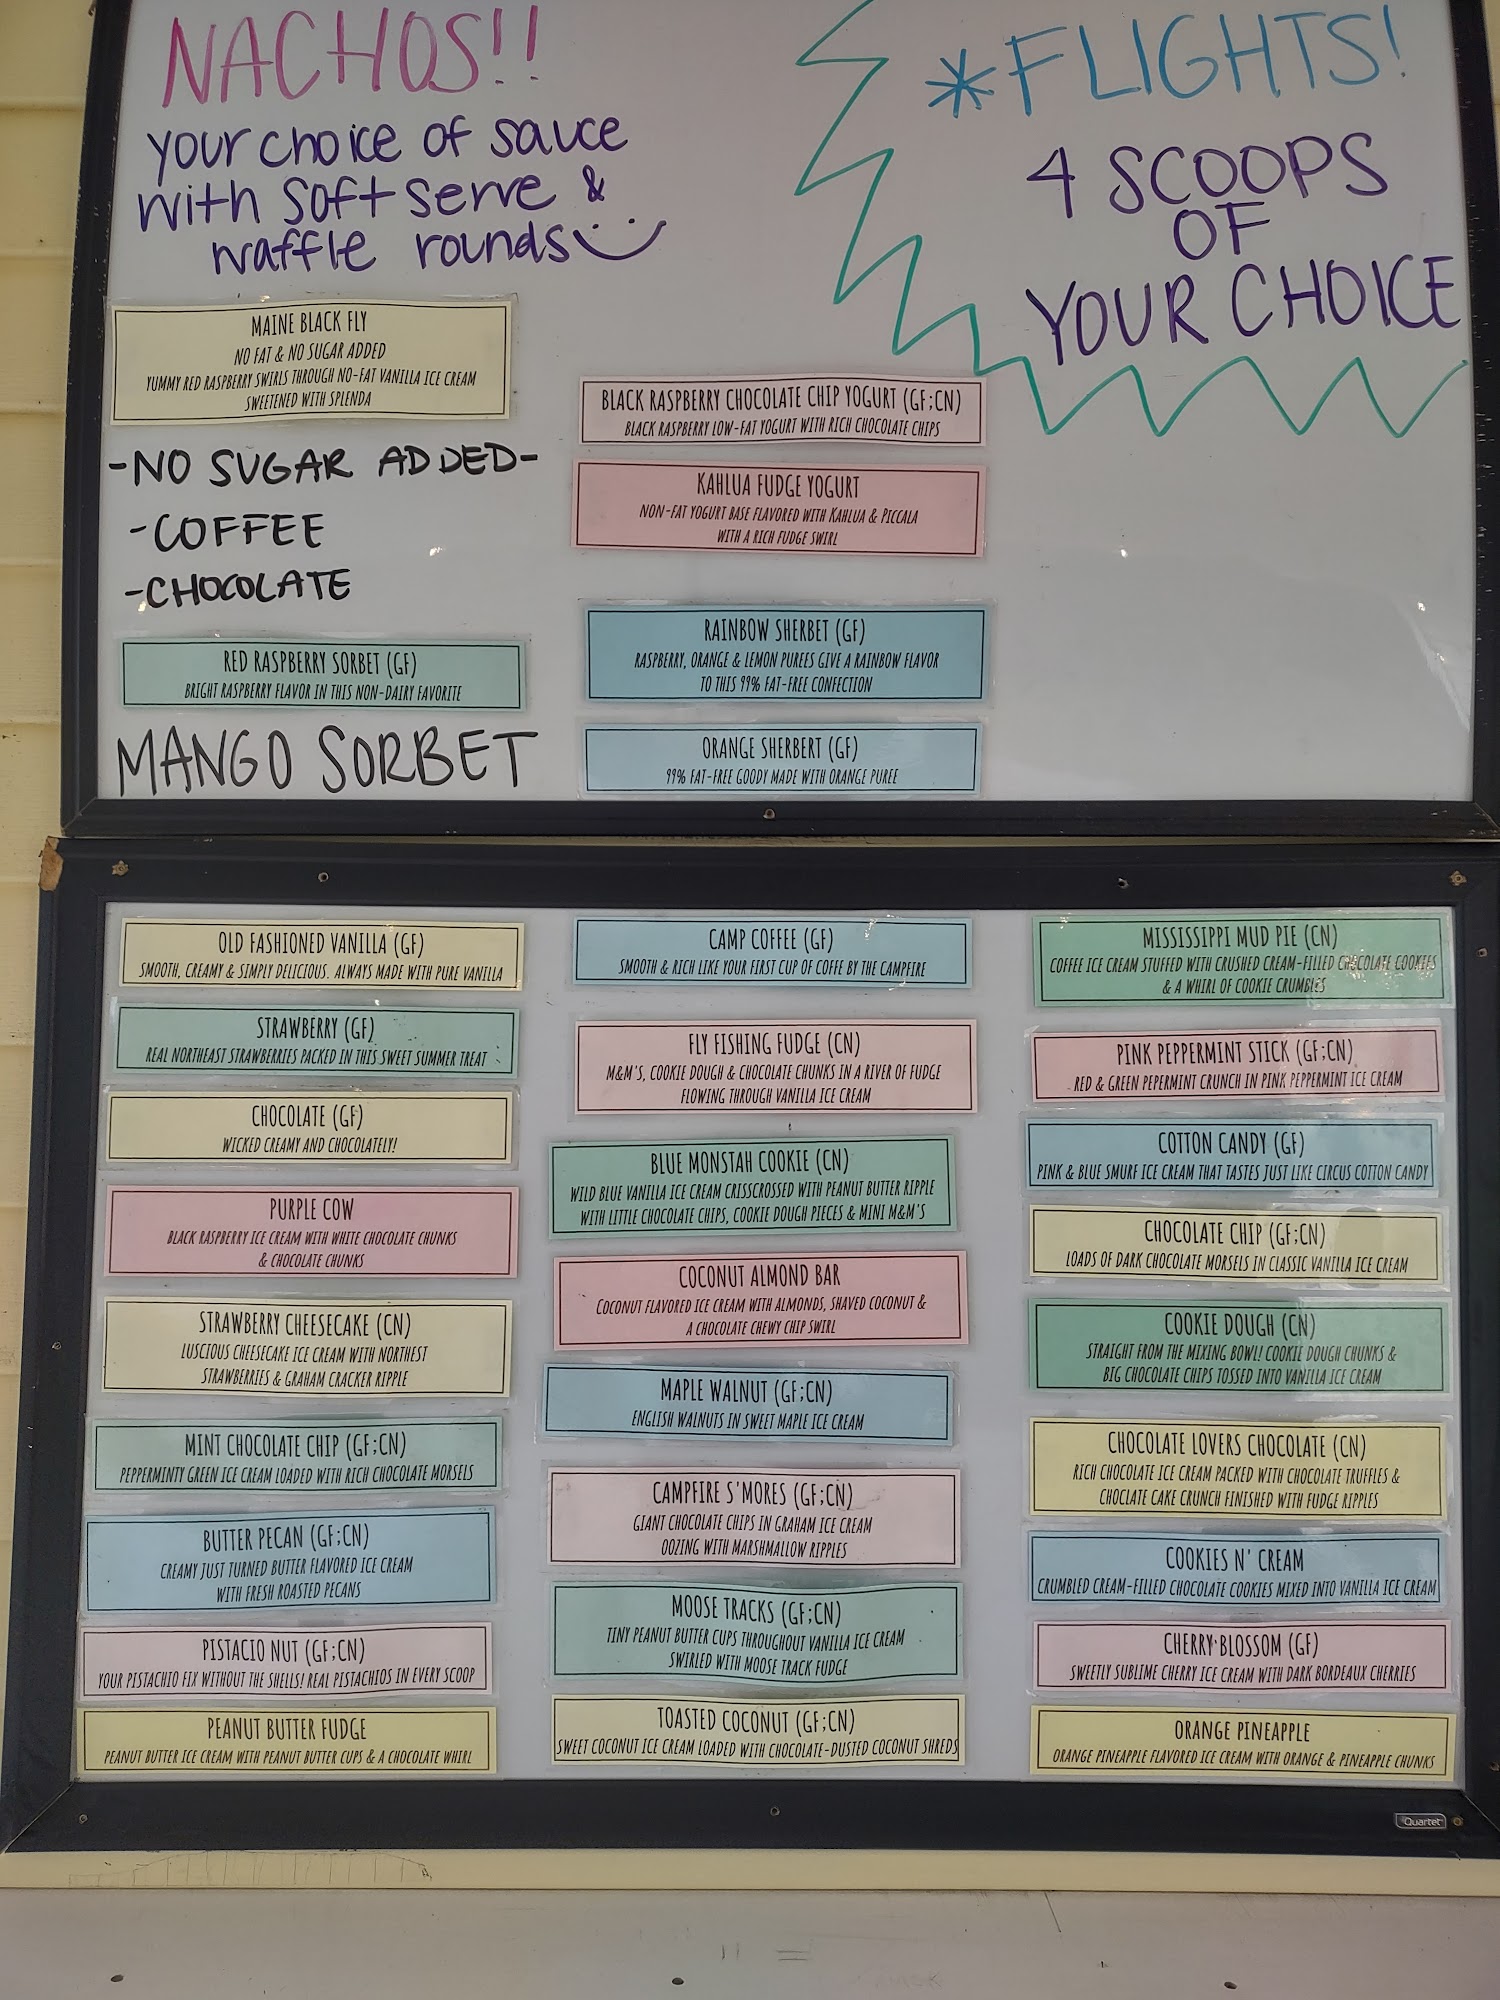 NACHOS!!
your choice of sauce
with soft serve &
waffle rounds
*FLIGHTS!
4 SCOOPS
OF
YOUR CHOICE
MAINE BLACK FLY
NO FAT & NO SUGAR ADDED
YUMMY RED RASPBERRY SWIRLS THROUGH NO-FAT VANILLA ICE CREAM
SWEETENED WITH SPLENDA
-NO SUGAR ADDED-
-COFFEE
-CHOCOLATE
RED RASPBERRY SORBET (GF)
BRIGHT RASPBERRY FLAVOR IN THIS NON-DAIRY FAVORITE
MANGO SORBET
BLACK RASPBERRY CHOCOLATE CHIP YOGURT (GF;CN)
BLACK RASPBERRY LOW-FAT YOGURT WITH RICH CHOCOLATE CHIPS
KAHLUA FUDGE YOGURT
NON-FAT YOGURT BASE FLAVORED WITH KAHLUA & PICCALA
WITH A RICH FUDGE SWIRL
RAINBOW SHERBET (GF)
RASPBERRY, ORANGE & LEMON PUREES GIVE A RAINBOW FLAVOR
TO THIS 99% FAT-FREE CONFECTION
ORANGE SHERBERT (GF)
99% FAT-FREE GOODY MADE WITH ORANGE PUREE
OLD FASHIONED VANILLA (GF)
SMOOTH, CREAMY & SIMPLY DELICIOUS. ALWAYS MADE WITH PURE VANILLA
STRAWBERRY (GF)
REAL NORTHEAST STRAWBERRIES PACKED IN THIS SWEET SUMMER TREAT
CHOCOLATE (GF)
WICKED CREAMY AND CHOCOLATELY!
PURPLE COW
BLACK RASPBERRY ICE CREAM WITH WHITE CHOCOLATE CHUNKS
& CHOCOLATE CHUNKS
STRAWBERRY CHEESECAKE (CN)
LUSCIOUS CHEESECAKE ICE CREAM WITH NORTHEST
STRAWBERRIES & GRAHAM CRACKER RIPPLE
MINT CHOCOLATE CHIP (GF;CN)
PEPPERMINTY GREEN ICE CREAM LOADED WITH RICH CHOCOLATE MORSELS
BUTTER PECAN (GF;CN)
CREAMY JUST TURNED BUTTER FLAVORED ICE CREAM
WITH FRESH ROASTED PECANS
PISTACIO NUT (GF;CN)
YOUR PISTACHIO FIX WITHOUT THE SHELLS! REAL PISTACHIOS IN EVERY SCOOP
PEANUT BUTTER FUDGE
PEANUT BUTTER ICE CREAM WITH PEANUT BUTTER CUPS & A CHOCOLATE WHIRL
CAMP COFFEE (GF)
SMOOTH & RICH LIKE YOUR FIRST CUP OF COFFE BY THE CAMPFIRE
FLY FISHING FUDGE (CN)
M&M'S, COOKIE DOUGH & CHOCOLATE CHUNKS IN A RIVER OF FUDGE
FLOWING THROUGH VANILLA ICE CREAM
BLUE MONSTAH COOKIE (CN)
WILD BLUE VANILLA ICE CREAM CRISSCROSSED WITH PEANUT BUTTER RIPPLE
WITH LITTLE CHOCOLATE CHIPS, COOKIE DOUGH PIECES & MINI M&M'S
COCONUT ALMOND BAR
COCONUT FLAVORED ICE CREAM WITH ALMONDS, SHAVED COCONUT &
A CHOCOLATE CHEWY CHIP SWIRL
MAPLE WALNUT (GF;CN)
ENGLISH WALNUTS IN SWEET MAPLE ICE CREAM
CAMPFIRE S'MORES (GF;CN)
GIANT CHOCOLATE CHIPS IN GRAHAM ICE CREAM
OOZING WITH MARSHMALLOW RIPPLES
MOOSE TRACKS (GF;CN)
TINY PEANUT BUTTER CUPS THROUGHOUT VANILLA ICE CREAM
SWIRLED WITH MOOSE TRACK FUDGE
TOASTED COCONUT (GF;CN)
SWEET COCONUT ICE CREAM LOADED WITH CHOCOLATE-DUSTED COCONUT SHREDS
MISSISSIPPI MUD PIE (CN)
COFFEE ICE CREAM STUFFED WITH CRUSHED CREAM-FILLED CHOCOLATE COOKIES
& A WHIRL OF COOKIE CRUMBLES
PINK PEPPERMINT STICK (GF;CN)
RED & GREEN PEPERMINT CRUNCH IN PINK PEPPERMINT ICE CREAM
COTTON CANDY (GF)
PINK & BLUE SMURF ICE CREAM THAT TASTES JUST LIKE CIRCUS COTTON CANDY
CHOCOLATE CHIP (GF;CN)
LOADS OF DARK CHOCOLATE MORSELS IN CLASSIC VANILLA ICE CREAM
COOKIE DOUGH (CN)
STRAIGHT FROM THE MIXING BOWL! COOKIE DOUGH CHUNKS &
BIG CHOCOLATE CHIPS TOSSED INTO VANILLA ICE CREAM
CHOCOLATE LOVERS CHOCOLATE (CN)
RICH CHOCOLATE ICE CREAM PACKED WITH CHOCOLATE TRUFFLES &
CHOCLATE CAKE CRUNCH FINISHED WITH FUDGE RIPPLES
COOKIES N' CREAM
CRUMBLED CREAM-FILLED CHOCOLATE COOKIES MIXED INTO VANILLA ICE CREAM
CHERRY BLOSSOM (GF)
SWEETLY SUBLIME CHERRY ICE CREAM WITH DARK BORDEAUX CHERRIES
ORANGE PINEAPPLE
ORANGE PINEAPPLE FLAVORED ICE CREAM WITH ORANGE & PINEAPPLE CHUNKS
Quartet